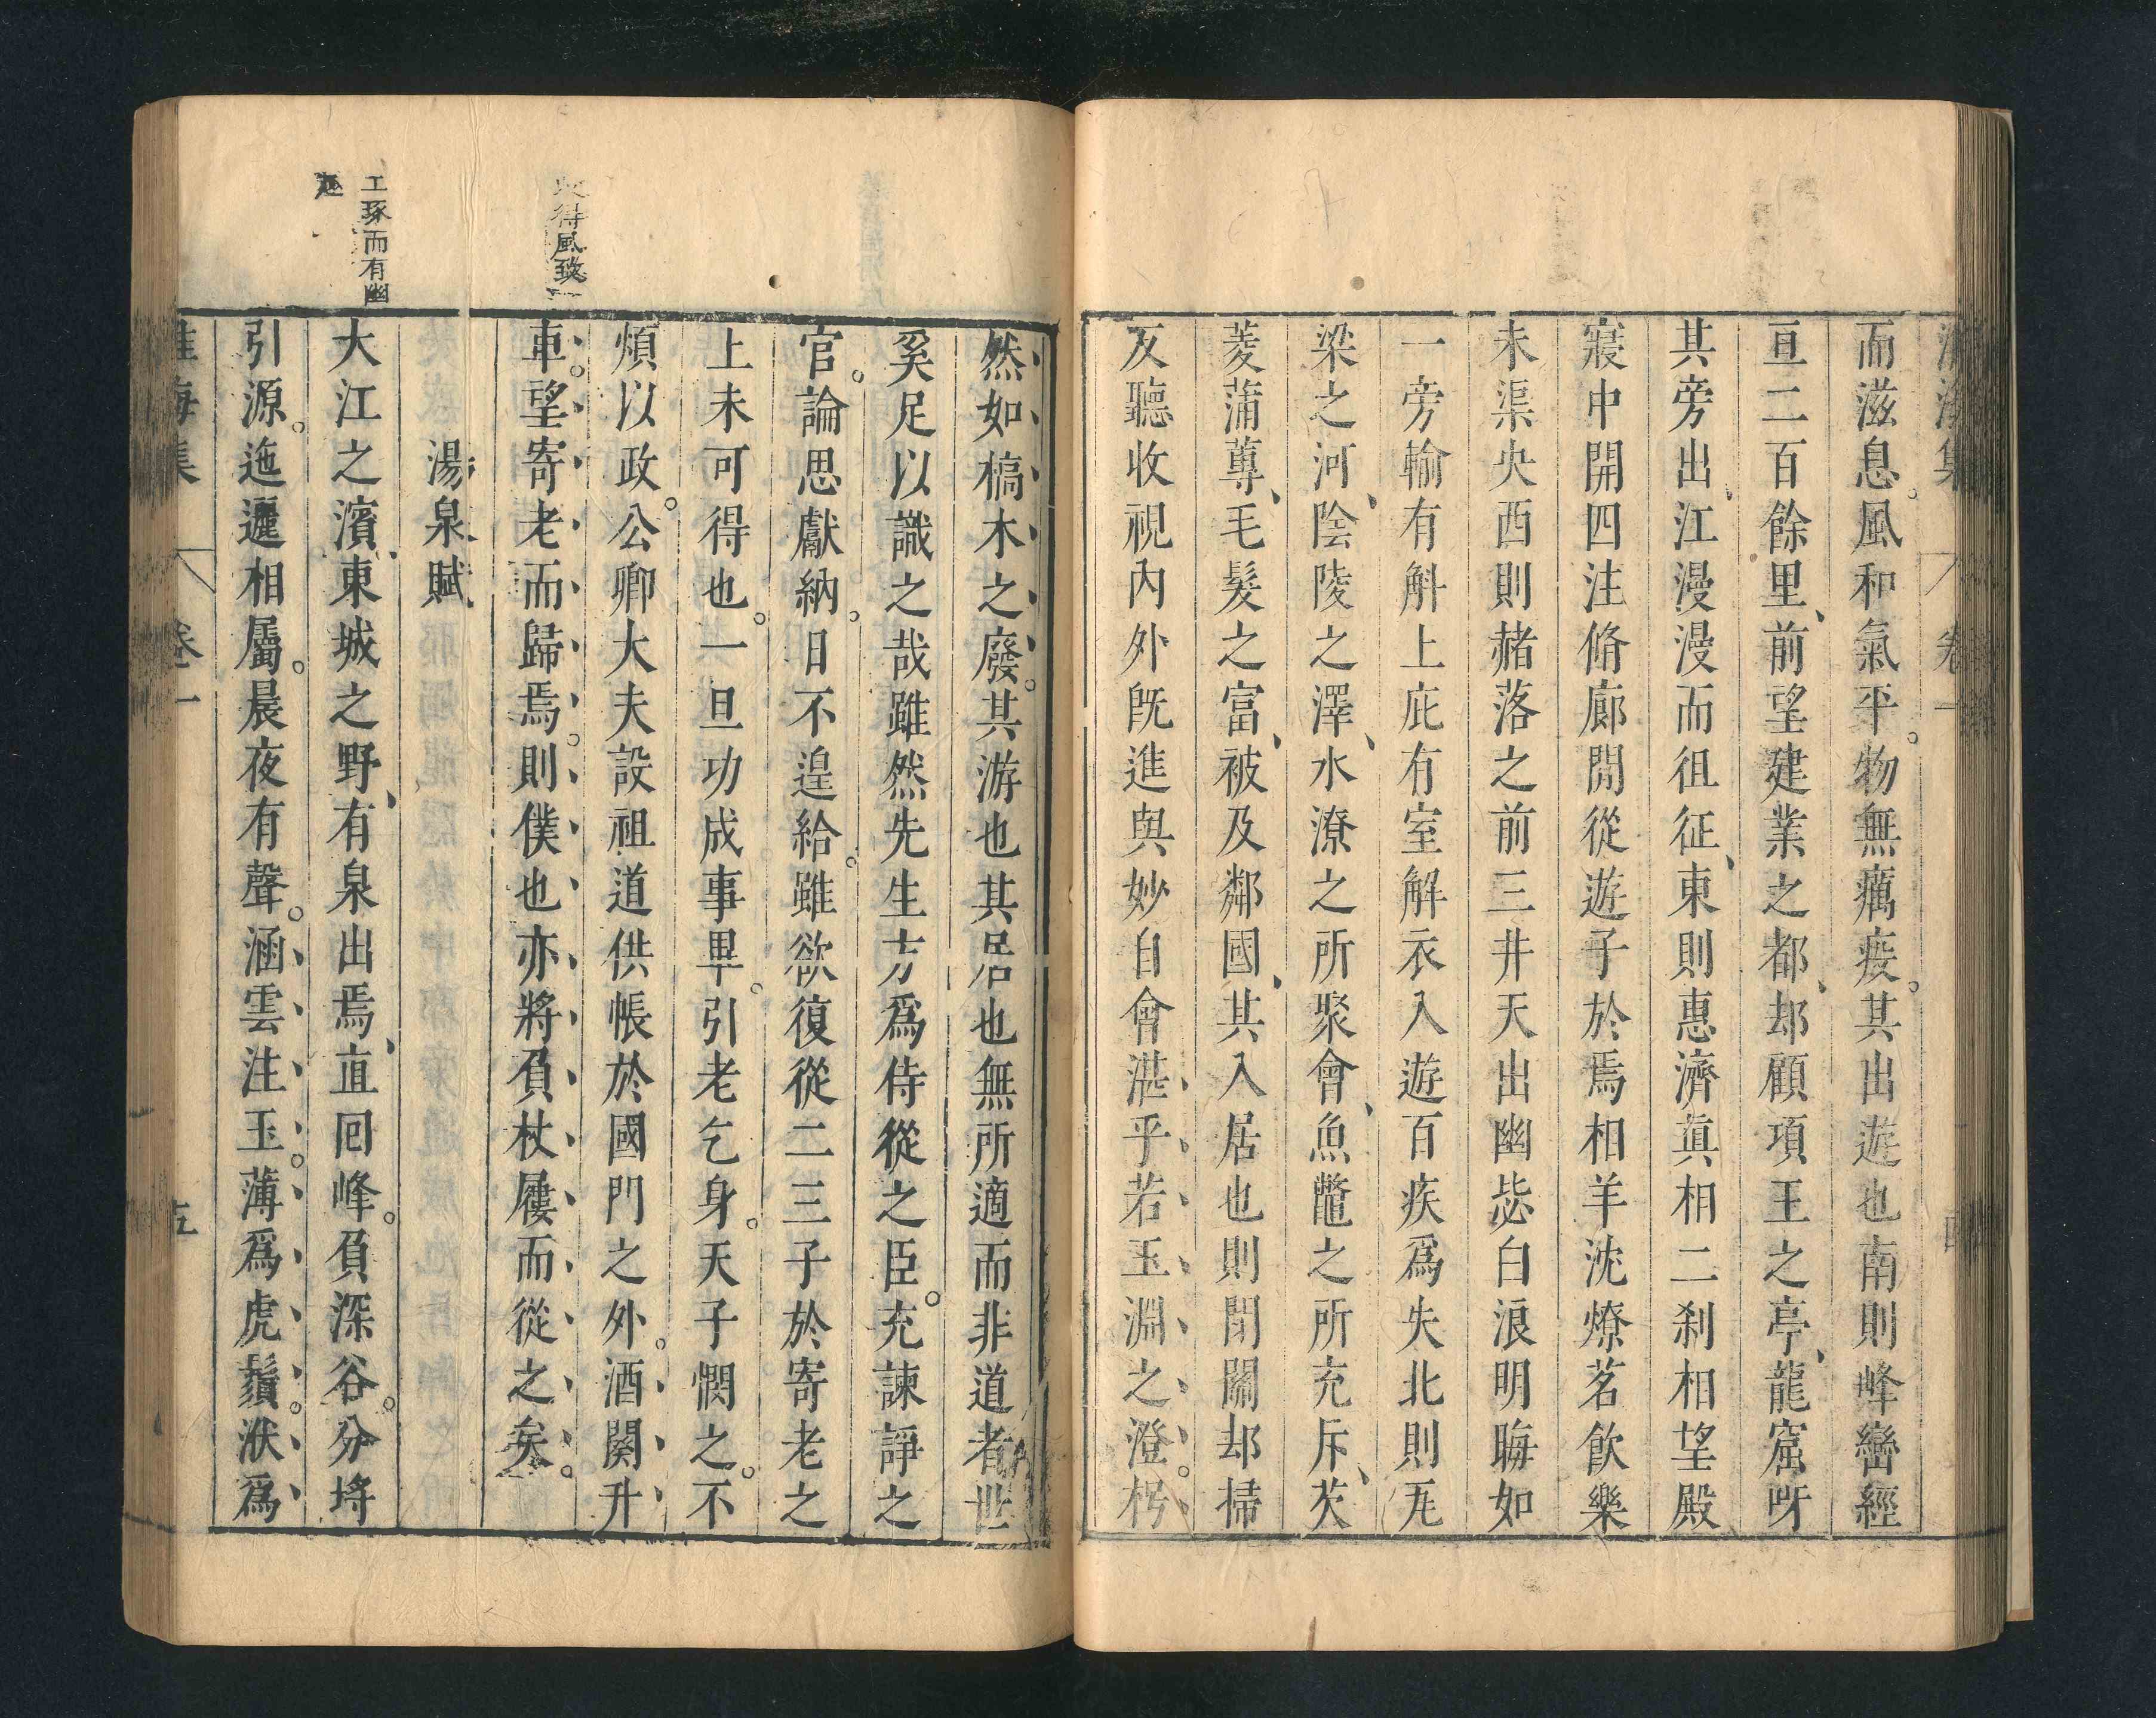 淮海集 卷一 四
而滋息風和氣平物無癘疫其出遊也南則峰巒經
亘二百餘里前望建業之都却顧項王之亭龍窟呀
其旁出江漫漫而徂征東則惠濟眞相二刹相望殿
寢中開四注脩廊閒從遊子於焉相羊沈燎茗飲樂
未渠央西則赭落之前三井天出幽毖白浪明晦如
一旁輸有斛上庇有室解衣入遊百疾爲失北則兂
梁之河陰陵之澤水潦之所聚會魚鼈之所充斥芡
菱蒲蓴毛髮之富被及鄰國其入居也則閉關却掃
反聽收視內外旣進與妙自會湛乎若玉淵之澄枵
然如槁木之廢其游也其居也無所適而非道者世
奚足以識之哉雖然先生方爲侍從之臣充諫諍之
官論思獻納日不遑給雖欲復從二三子於寄老之
上未可得也一旦功成事畢引老乞身天子憫之不
煩以政公卿大夫設祖道供帳於國門之外酒闋升
得風致
車望寄老而歸焉則僕也亦將負杖屨而從之矣
湯泉賦
工琢而有幽
趣
大江之濱東城之野有泉出焉直回峰負深谷分埓
引源迤邐相屬晨夜有聲涵雲注玉薄爲虎鬚洑爲
淮海集 卷一 五